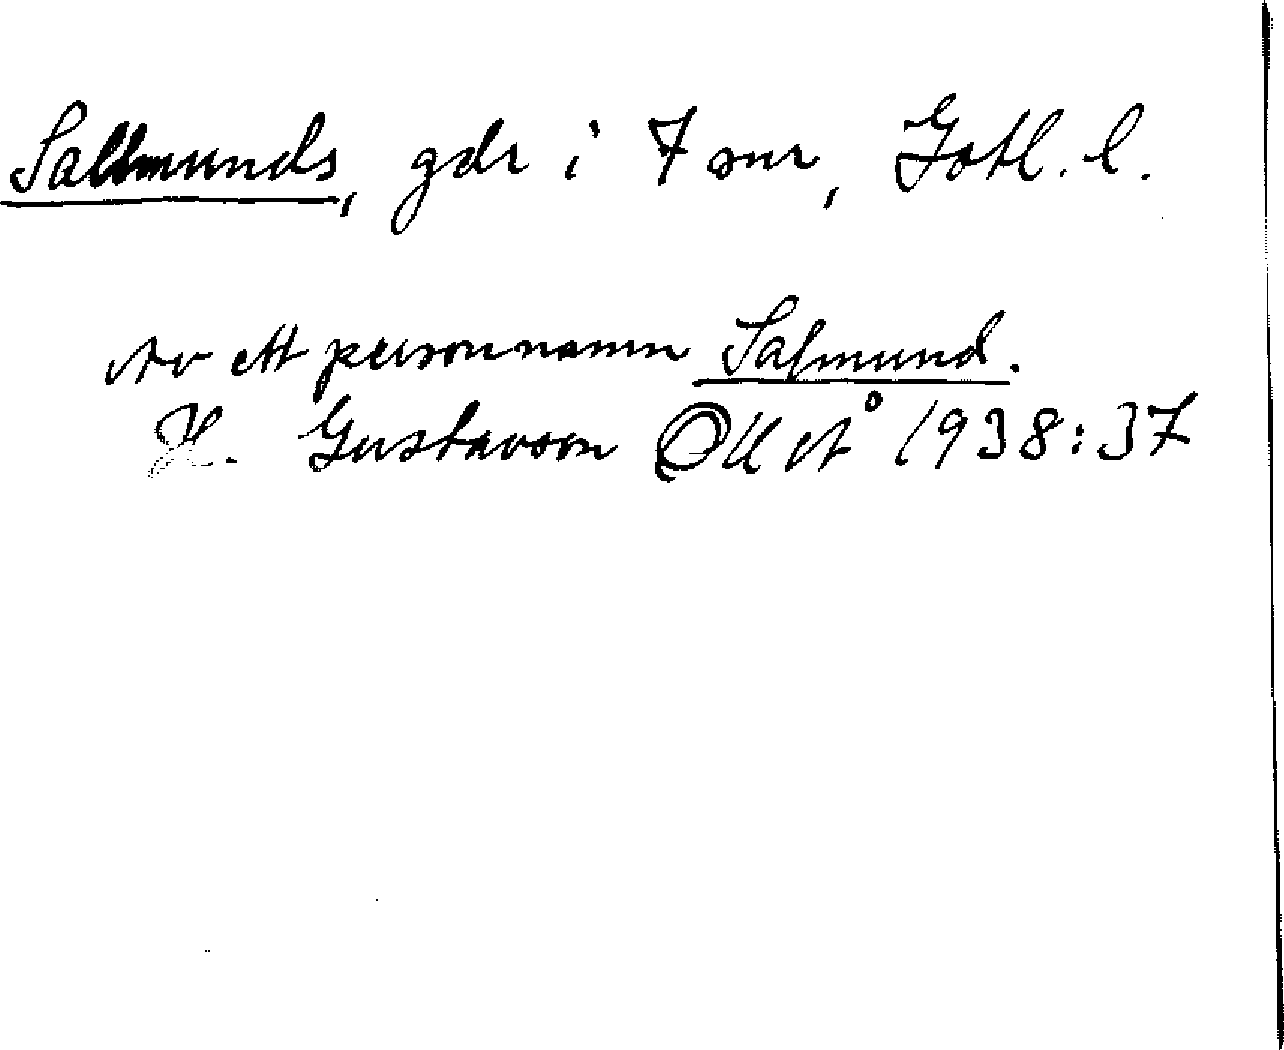 Sallmunds, gdr i 7 snr, Gotl. l.
Av ett personnamn Salmund.
H. Gustavson
1938:37